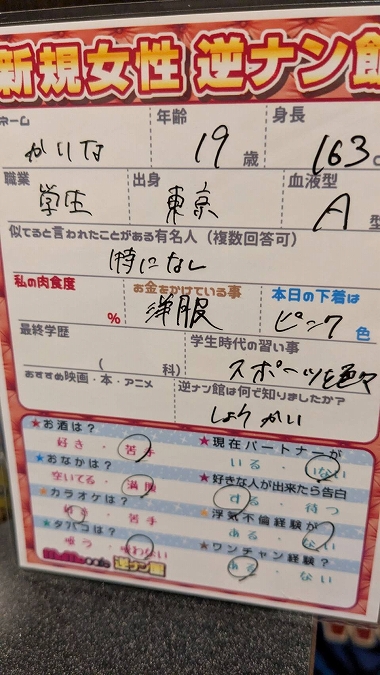 新規女性 逆ナン館
ネーム 年齢 身長
かりな 19歳 163c
職業 出身 血液型
学生 東京 A型
似てると言われたことがある有名人（複数回答可）
特になし
私の肉食度 お金をかけている事 本日の下着は
% 洋服 ピンク色
最終学歴 学生時代の習い事
（ 科） スポーツを色々
おすすめ映画・本・アニメ 逆ナン館は何で知りましたか？
しょうかい
★お酒は？ ★現在パートナーが
好き・苦手 いる・いない
★おなかは？ ★好きな人が出来たら告白
空いてる・満腹 する・待つ
★カラオケは？ ★浮気不倫経験が
好き・苦手 ある・ない
★タバコは？ ★ワンチャン経験？
吸う・吸わない ある・ない
逆ナン館